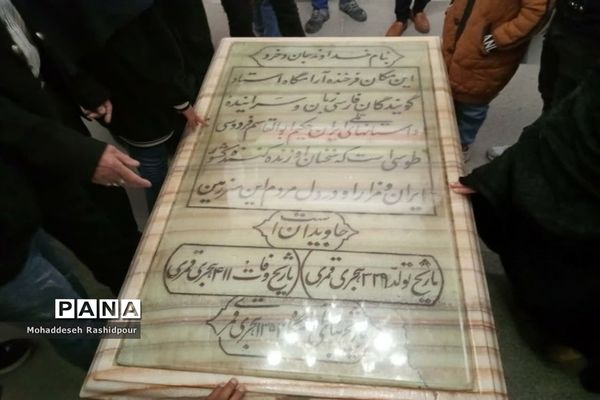 بنام خداوند جان و خرد
این مکان فرخنده آرامگاه استاد
گویندگان فارسی زبان و سراینده
داستانهای ملی ایران حکیم ابوالقاسم فردوسی
طوسی است که سخنان او زنده کننده کشور
ایران و مزار او در دل مردم این سرزمین
جاویدان است
تاریخ تولد ۳۲۹ هجری قمری
تاریخ وفات ۴۱۱ هجری قمری
تاریخ بنای هجری قمری
PANA
Mohaddeseh Rashidpour